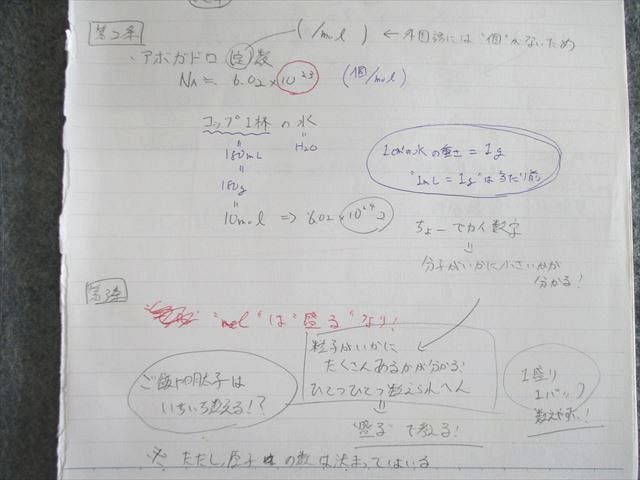 第2条
(/mol) ← 外国語には "個" がないため
・アボガドロ(定)数
NA ≒ 6.02×10^23 (個/mol)
コップ1杯の水
= =
180mL H2O
=
180g
=
10mol => 6.02×10^24コ
1cm³の水の重さ = 1g
"1mL = 1g" は当たり前
ちょーでカイ数字
⇓
分子がいかに小さいかが
分かる!
第3条
"mol" は "盛る" なり!
粒子がいかに
たくさんあるかが分かる!
ひとつひとつ数えられへん
⇓
"盛る" で考える!
ご飯の粒子は
いちいち数える!?
1盛り
1パック
数えやすい!
※ ただし、原子の数は決まってはいる